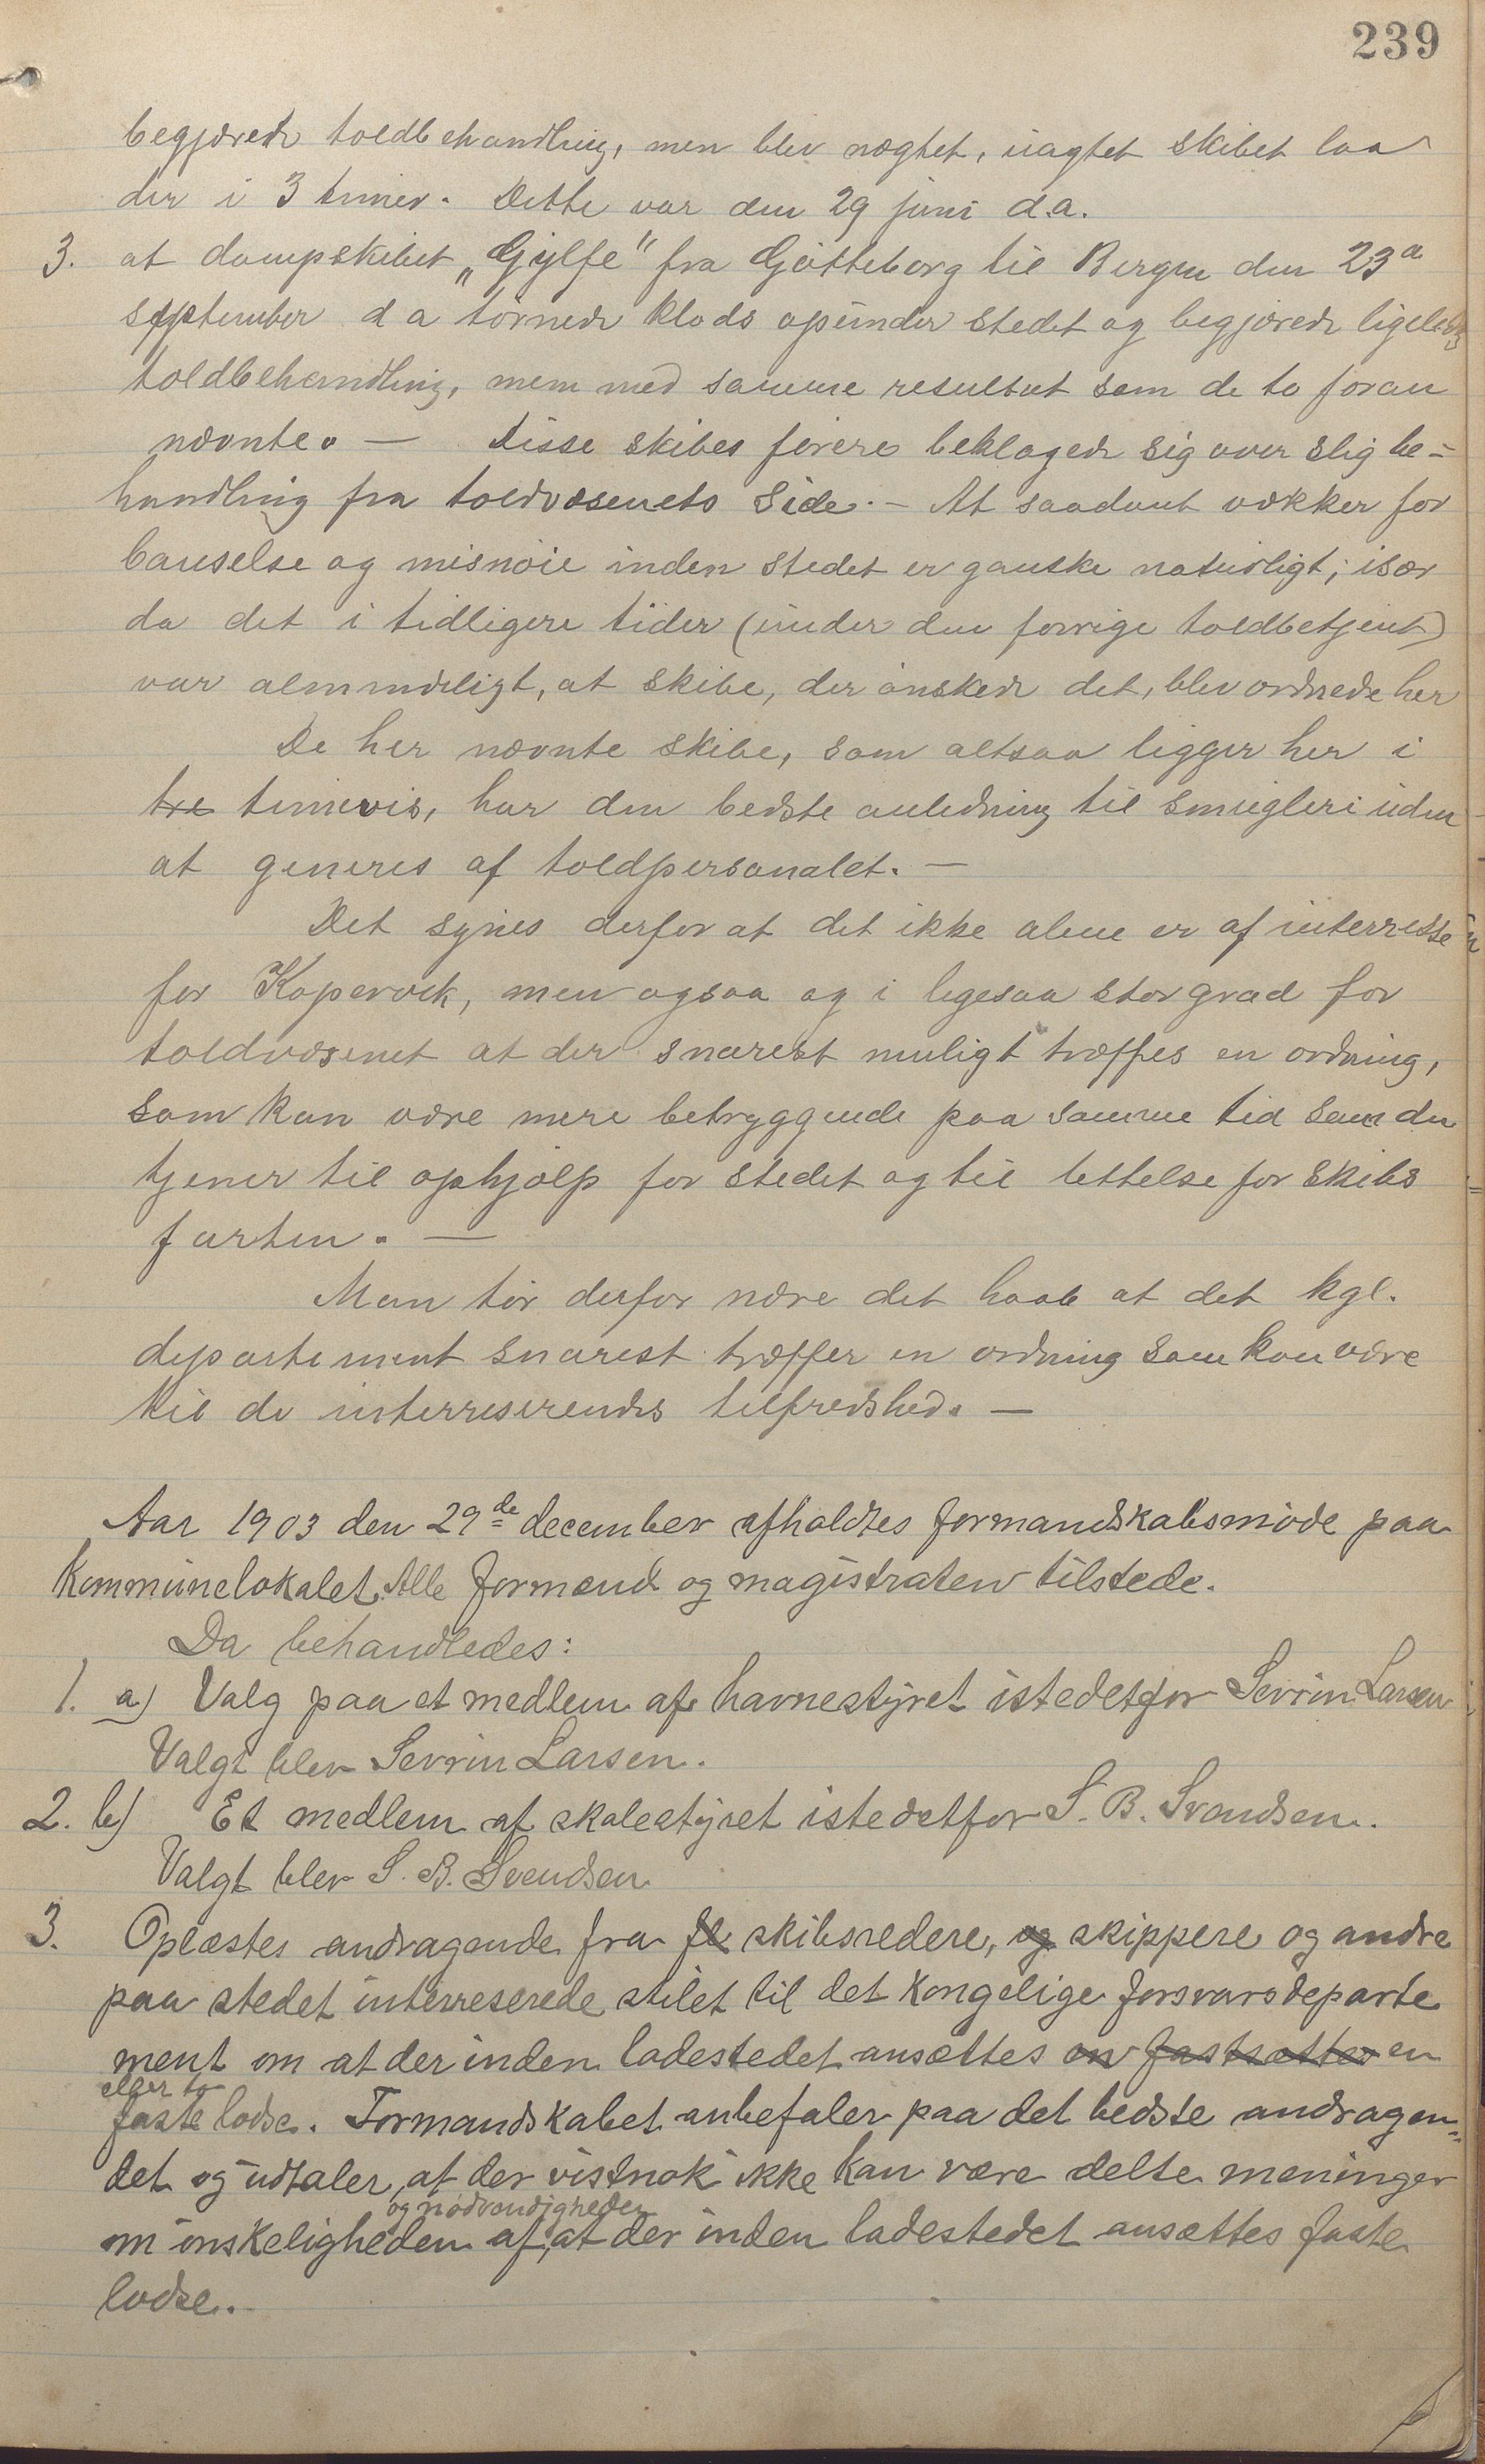 239
begjærede toldbehandling, men blev nægtet, uagtet skibet laa
der i 3 timer. Dette var den 29 juni d.a.
3. at dampskibet "Gylfe" fra Gøtteborg til Bergen den 23a
september d a tørnede klods opunder stedet og begjærede ligeledes
toldbehandling, men med samme resultat som de to foran
nævnte. — Disse skibes førere beklagede sig over slig be=
handling fra toldvæsenets Side. — At saadant vækker for
bauselse og misnøie inden stedet er ganske naturligt; især
da det i tidligere tider (under den forrige toldbetjent)
var almindeligt, at skibe, der ønskede det, blev ordnede her
De her nævnte skibe, som altsaa ligger her i
tre timevis, har den bedste anledning til smugleri uden
at generes af toldpersonalet. —
Det synes derfor at det ikke alene er af interresse
for Kopervik, men ogsaa og i ligesaa stor grad for
toldvæsenet at der snarest muligt træffes en ordning,
som kan være mere betryggende paa samme tid som den
tjener til ophjælp for stedet og til lettelse for skibs
farten. —
Man tør derfor nære det haab at det kgl.
departement snarest træffer en ordning som kan være
til de interreserendes tilfredshed. —
Aar 1903 den 29de december afholdtes formandskabsmøde paa
Kommunelokalet. Alle formænd og magistraten tilstede.
Da behandledes:
1. a) Valg paa et medlem af havnestyret istedetfor Sevrin Larsen
Valgt blev Sevrin Larsen.
2. b) Et medlem af skolestyret istedetfor S. B. Svendsen.
Valgt blev S. B. Svendsen
3. Oplæstes andragende fra fl skibsredere, og skippere og andre
paa stedet interreserede stilet til det Kongelige forsvarsdeparte
ment om at der inden ladestedet ansættes en fastsatte en
eller to
faste lodse. Formandskabet anbefaler paa det bedste andragen=
det og udtaler, at der vistnok ikke kan være delte meninger
og nødvendigheden
om ønskeligheden af, at der inden ladestedet ansættes faste
lodse.